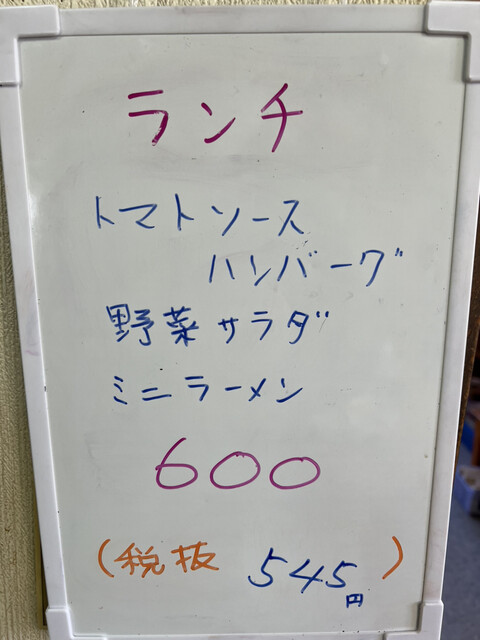 ランチ
トマトソース
ハンバーグ
野菜サラダ
ミニラーメン
600
(税抜 545円)